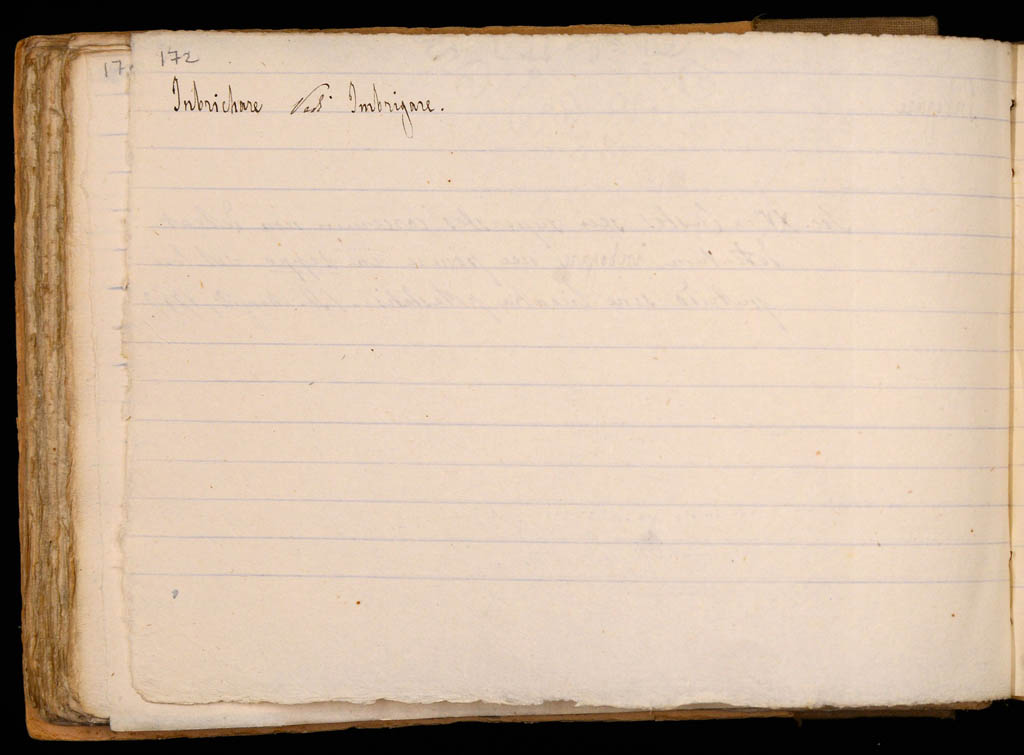 172
17
Inbrichare Vedi Imbrigare.